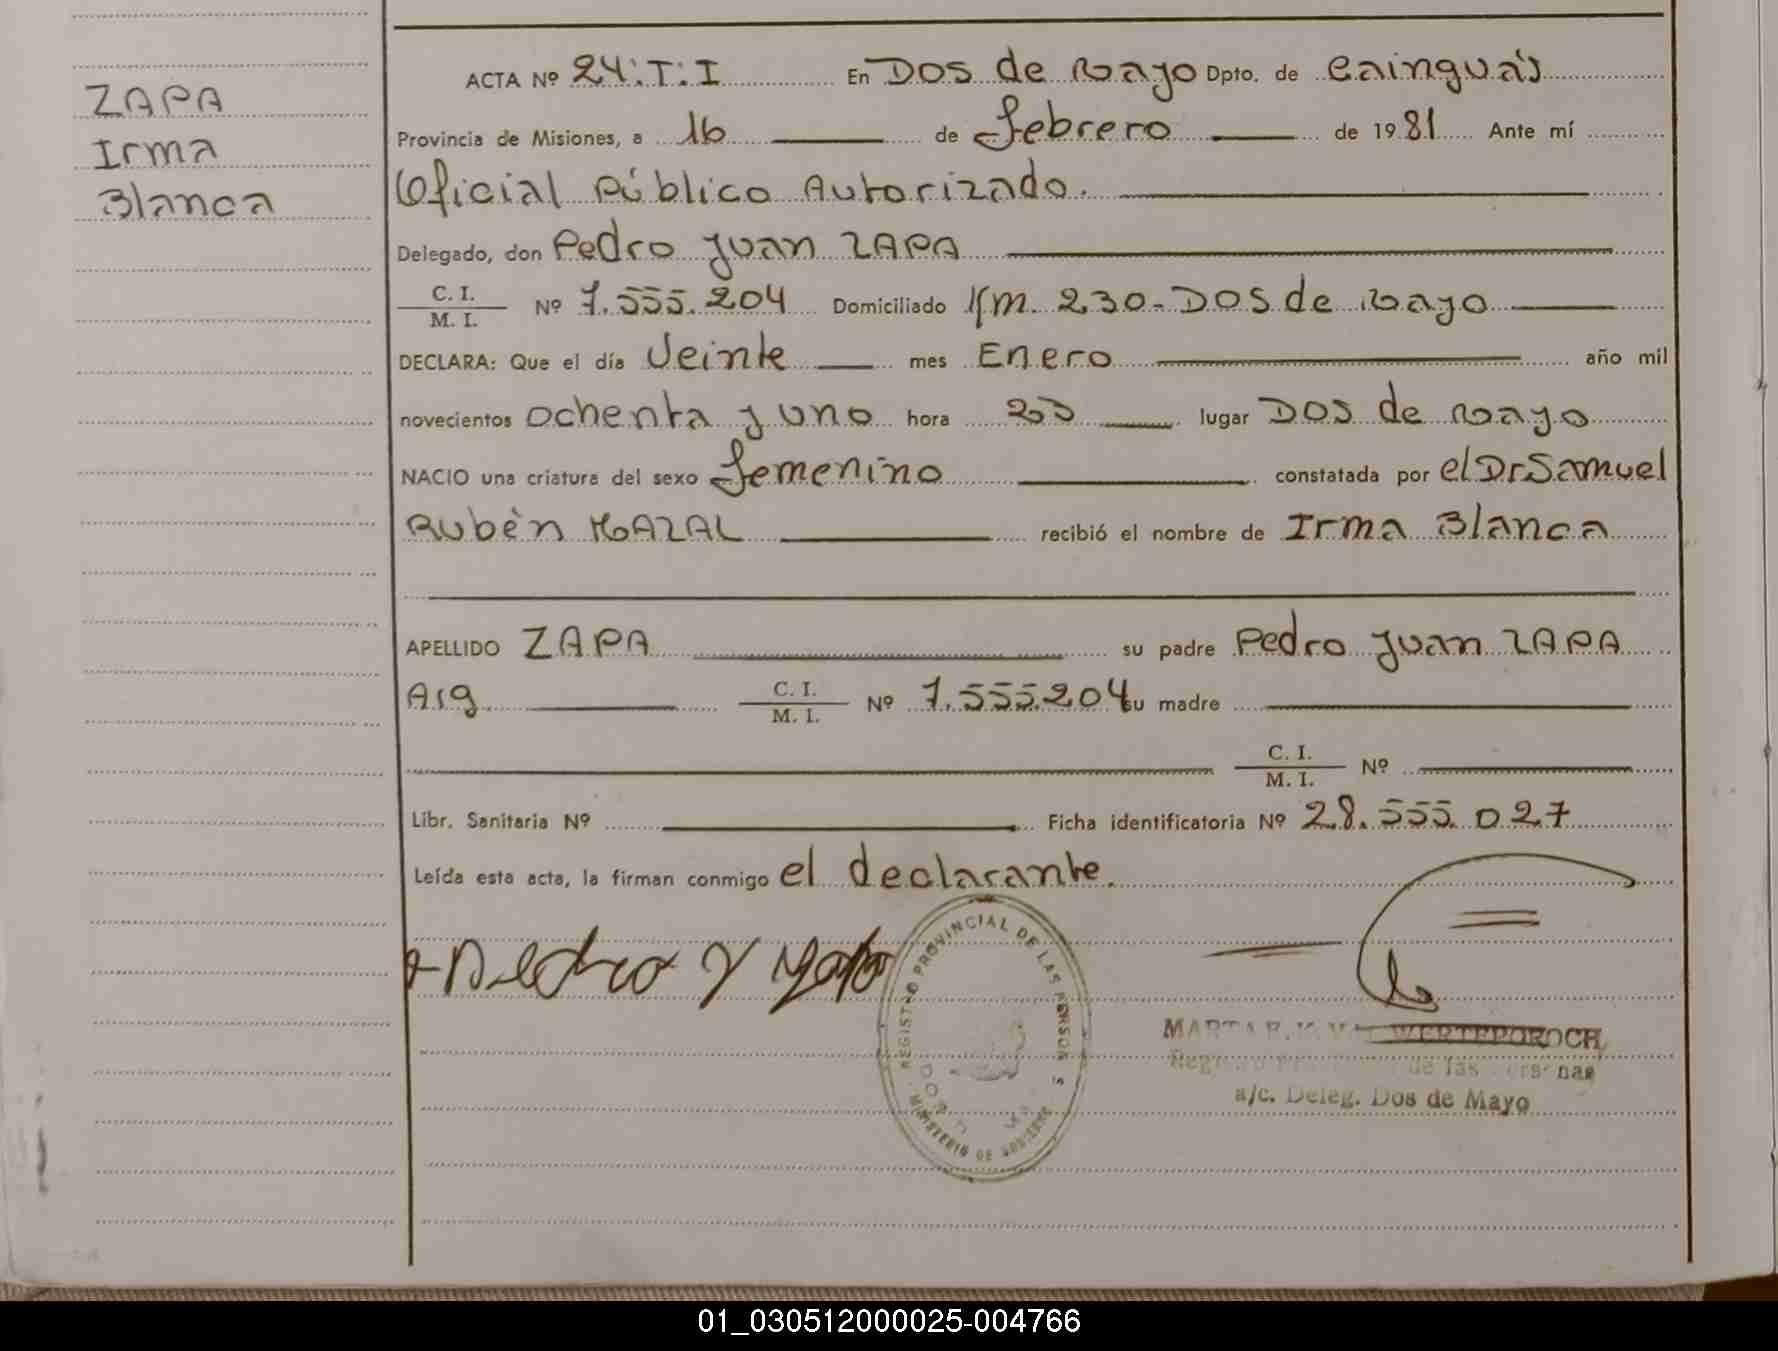 ZAPA
Irma
Blanca
ACTA Nº 24:T:I En Dos de Mayo Dpto. de Cainguás
Provincia de Misiones, a 16 de febrero de 1981 Ante mí
Oficial Público Autorizado.
Delegado, don Pedro Juan ZAPA
C. I.
M. I. Nº 7.555.204 Domiciliado Km. 230 - Dos de Mayo
DECLARA: Que el día Veinte mes Enero año mil
novecientos ochenta y uno hora lugar Dos de Mayo
NACIO una criatura del sexo femenino constatada por el Dr Samuel
Rubèn MAZAL recibió el nombre de Irma Blanca
APELLIDO ZAPA su padre Pedro Juan ZAPA
Arg. C. I.
M. I. Nº 7.555.204 su madre
C. I.
M. I. Nº
Libr. Sanitaria Nº Ficha identificatoria Nº 28.555.027
Leída esta acta, la firman conmigo el declarante.
REGISTRO PROVINCIAL DE LAS PERSONAS
MINISTERIO DE GOBIERNO
MARTA WERTEPOROCH
de las Personas
a/c. Deleg. Dos de Mayo
01_030512000025-004766